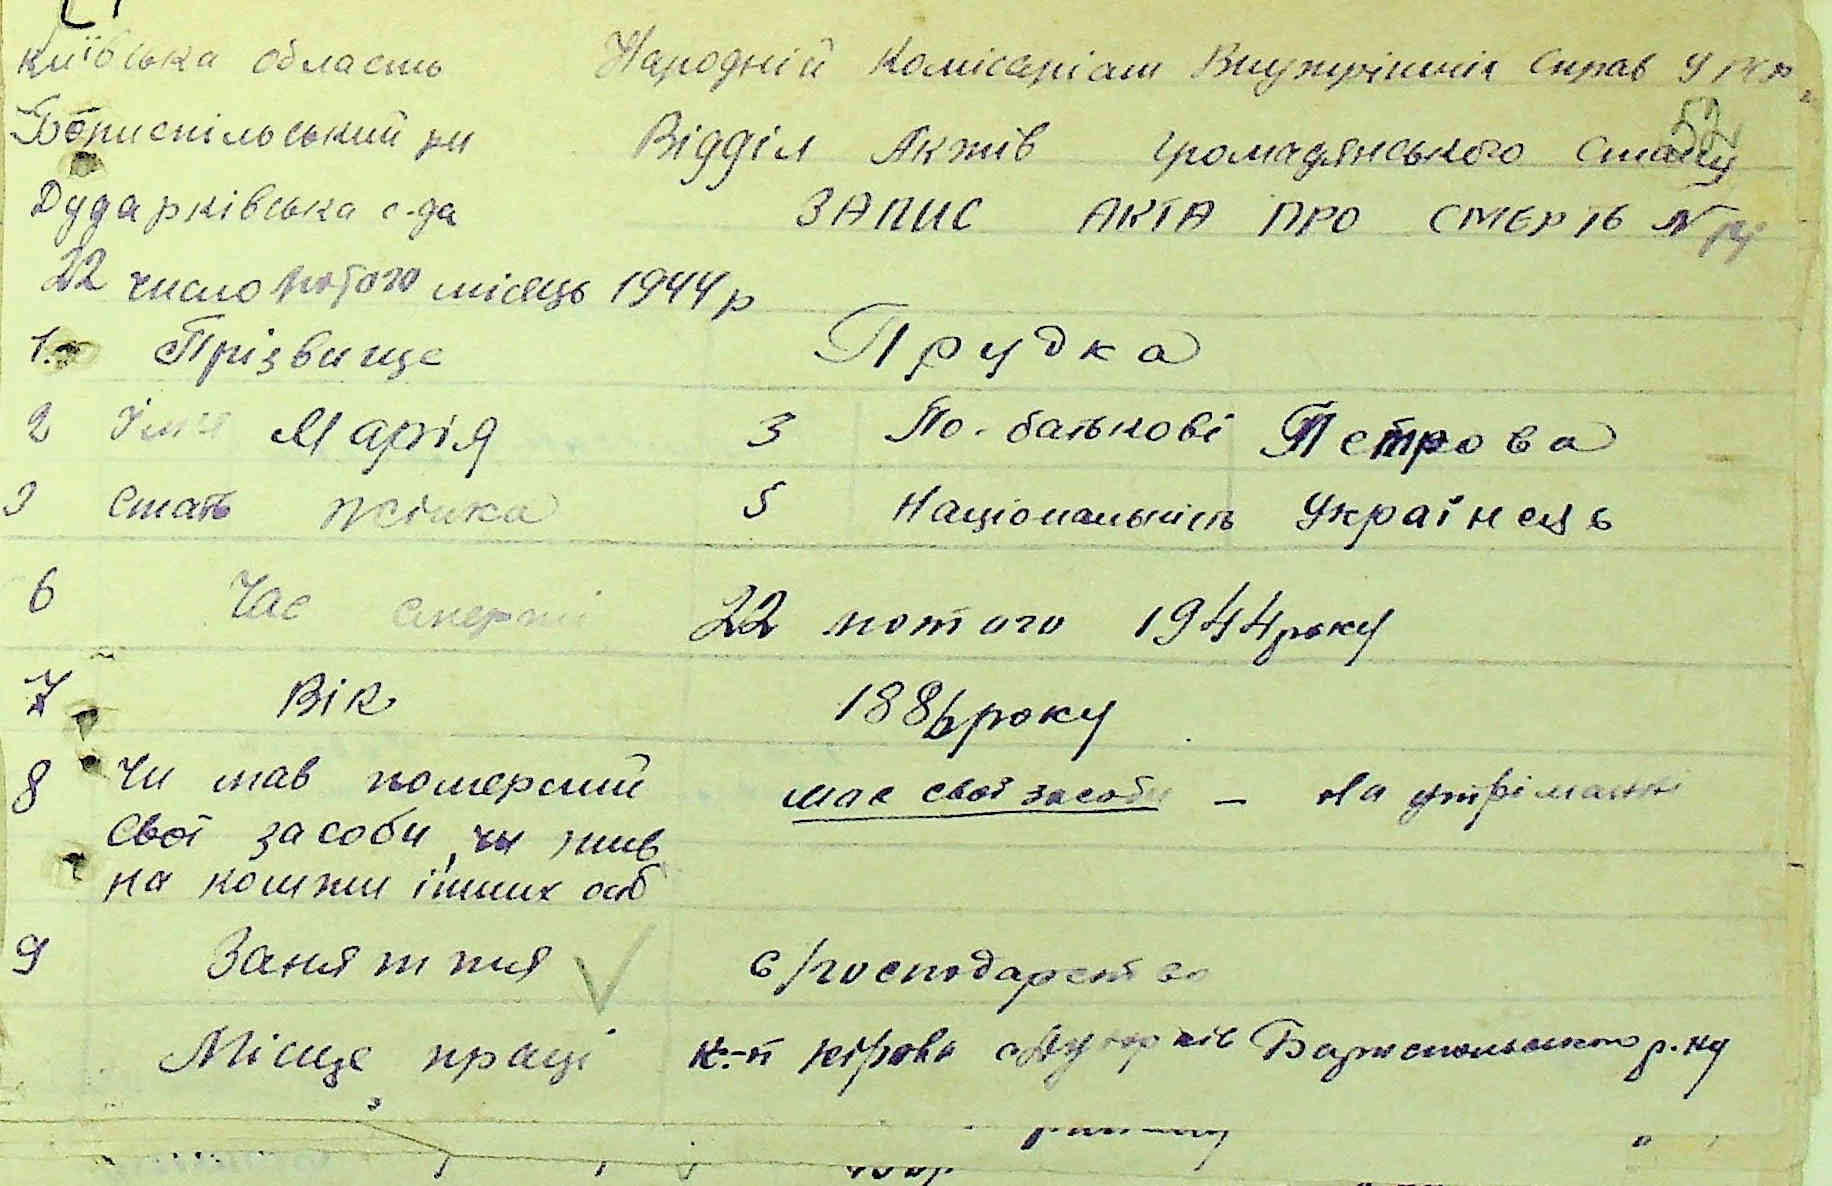 Київська область Народній Комісаріат Внутрішніх Справ УРСР
52
Бориспільський рн Відділ Актів Громадянського Стану
Дударківська с-да ЗАПИС АКТА ПРО СМЕРТЬ № 14
22 число лютого місяць 1944 р
1. Прізвище Прудка
2 Імя Марія 3 По-батькові Петрова
3 Стать жінка 5 Національність Українець
6 Час смерті 22 лютого 1944 року
7 Вік 1886 року
8 Чи мав померший має свої засоби - На утріманні
свої засоби, чи жив
на кошти інших осіб
9 Заняття с/господарство
Місце праці к-п Кірова с Дударків Бориспольського р-ну